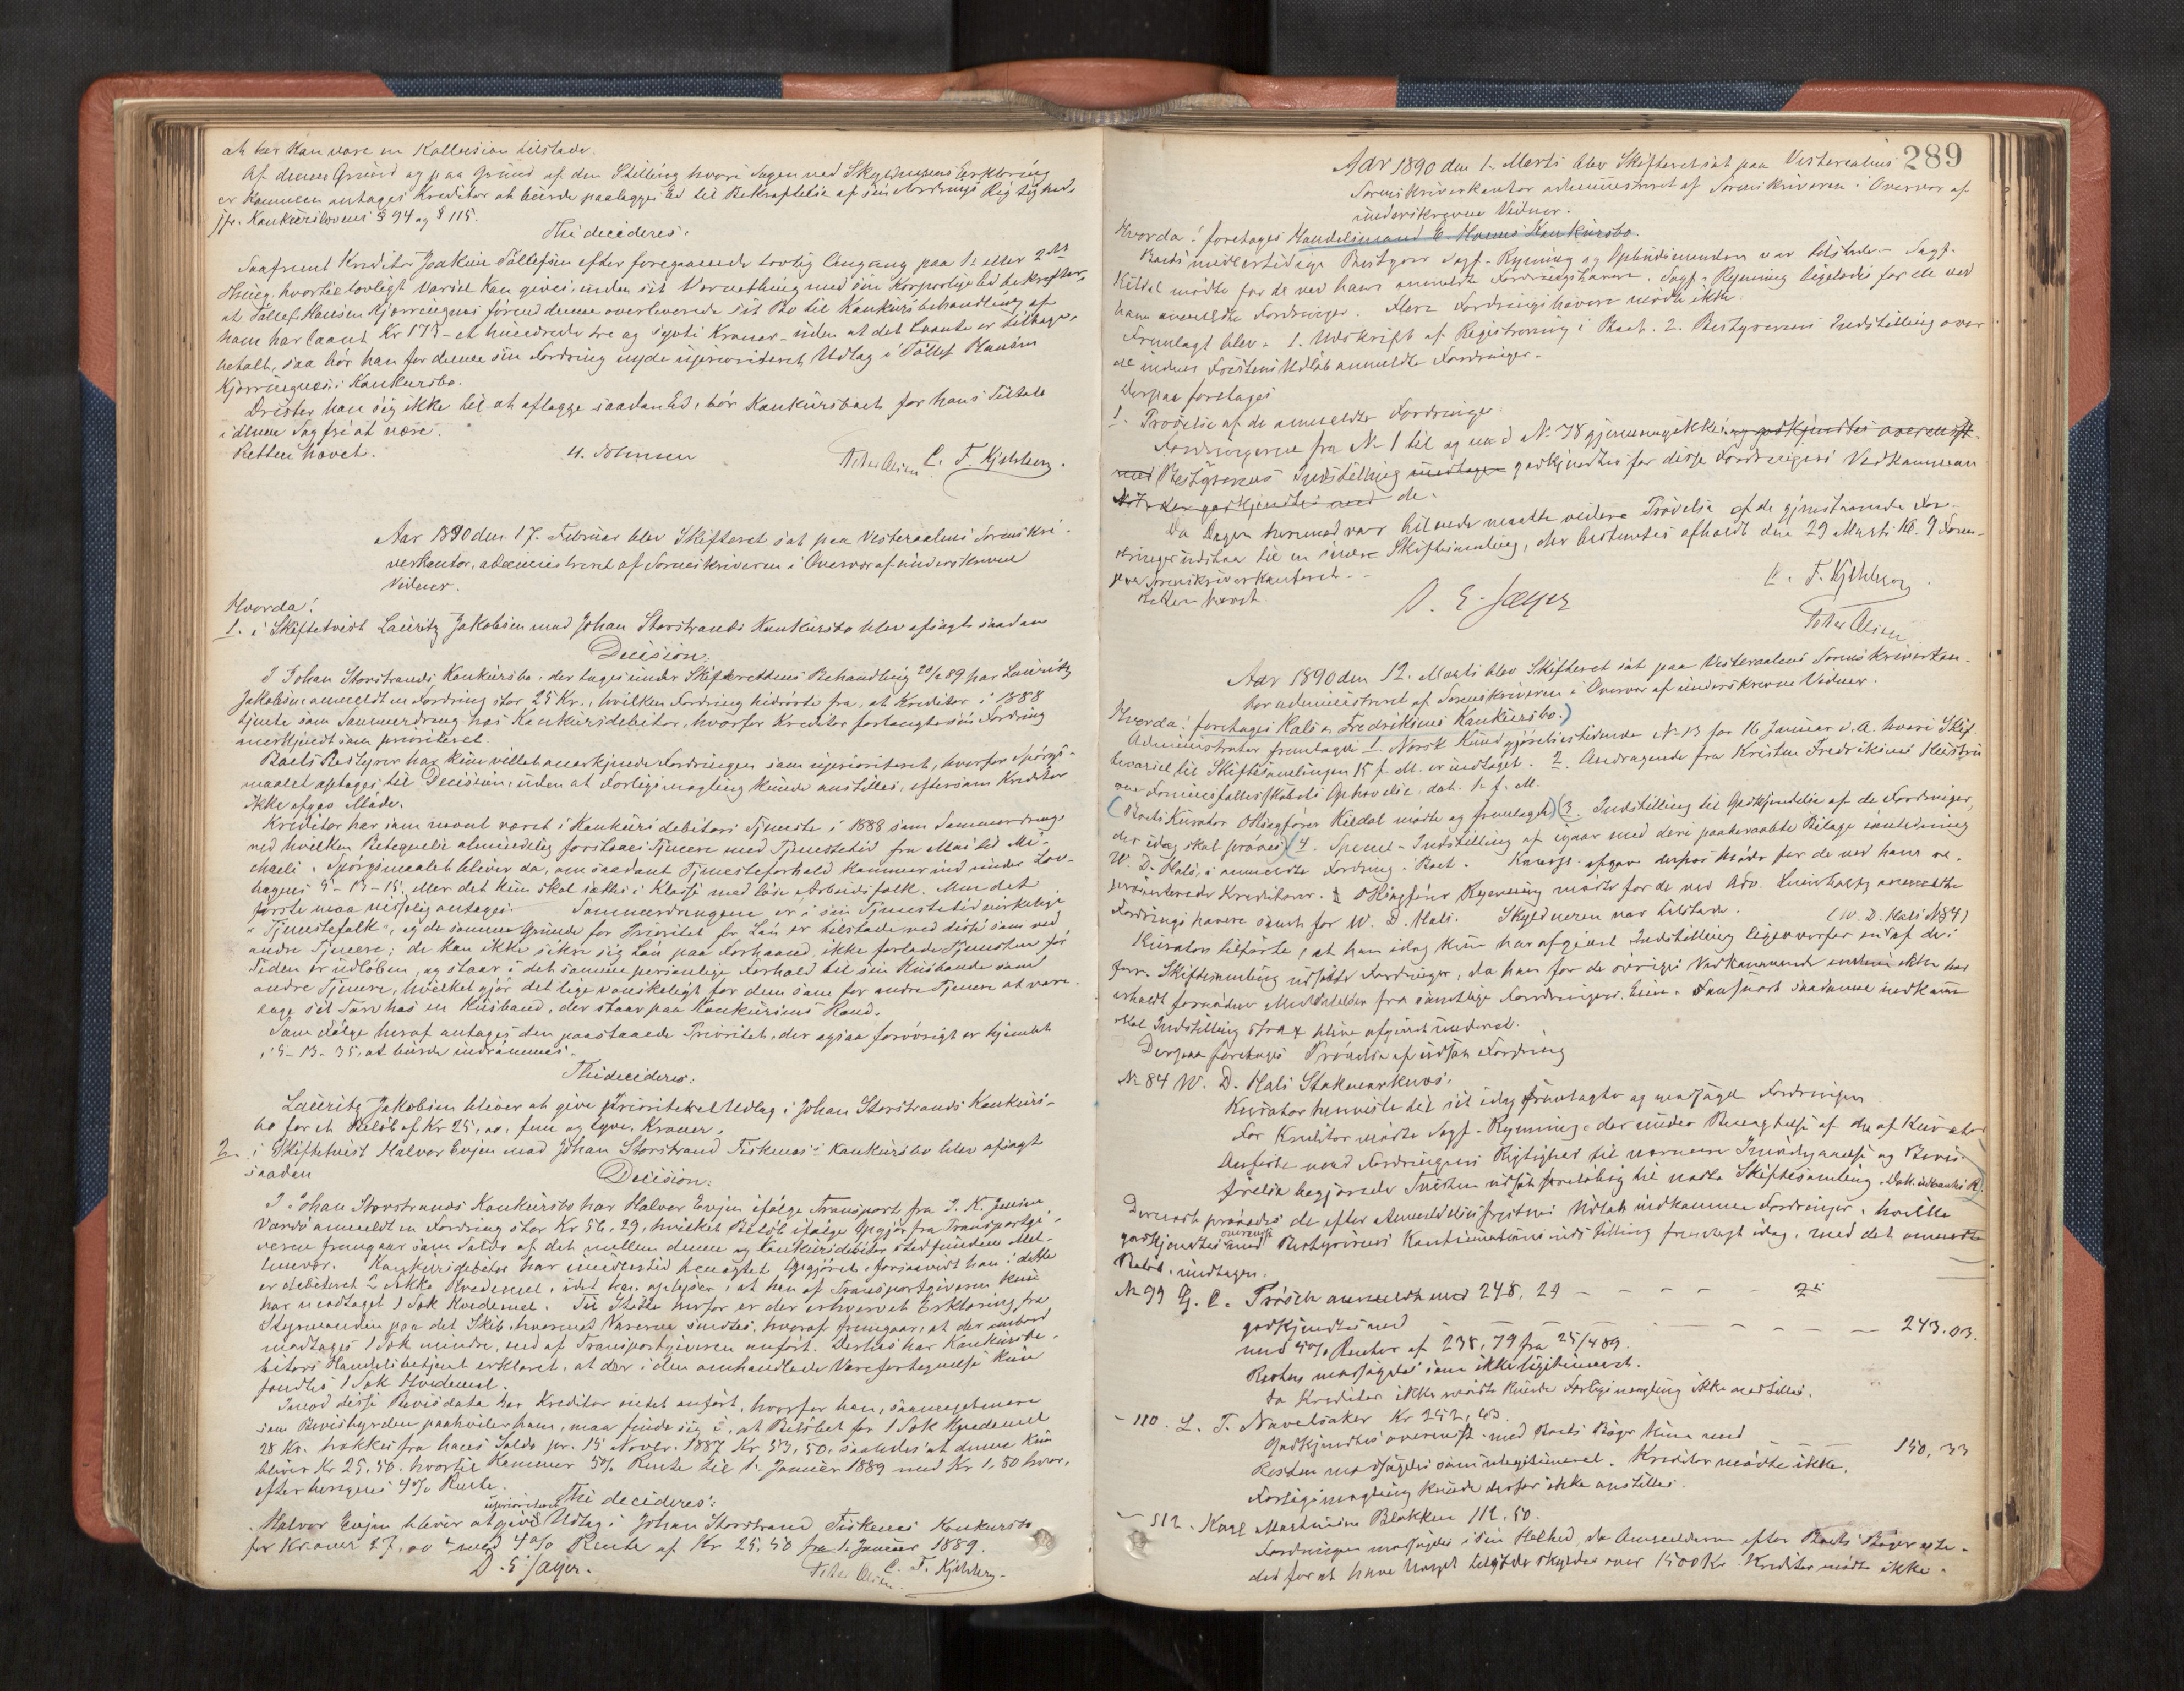 at her kan være en Kollusion tilstede.
Af denne Grund og paa Grund af den Stilling hvori Sagen ved Skyldnerens Erklæring
er kommen antages Kreditor at burde paalægges Ed til Bekræftelse af sin Fordrings Rigtighed
jfr. Konkurslovens § 94 og § 115.
Thi decideres:
Saafremt Kreditor Joakim Tollefsen efter foregaaende lovlig Omgang paa 1ste eller 2det
Thing, hvortil lovligt Varsel kan gives, inden sit Værnething med sin korporlige Ed bekræfter,
at Tollef Hansen Kjørringnes forend denne overleverede sit Bo til Konkursbehandling af
ham har laant Kr 173 - et hundrede tre og sytti Kroner - uden at det Laante er tilbage-
betalt, saa bør han for denne sin Fordring nyde uprioriteret Udlag i Tollef Hansen
Kjørringnes's Konkursbo.
Drister han sig ikke til at aflægge saadan Ed, bør Konkursboet for hans Tiltale
i denne Sag fri at være.
Retten hævet.
Peter Olsen C. F. Kjeldberg.
Aar 1890 den 17. Februar blev Skifteret sat paa Vesteraalens Sorenskri-
verkontor, administreret af Sorenskriveren i Overvær af underskrevne
Vidner.
Hvorda:
1. i Skiftetvist Lauritz Jakobsen mod Johan Storstrands Konkursbo blev afsagt saadan
Decision:
I Johan Storstrands Konkursbo, der toges under Skifterettens Behandling 20/2 89 har Lauritz
Jakobsen anmeldt en Fordring stor 25 Kr., hvilken Fordring hidrørte fra, at Kreditor i 1888
tjente som Sommerdreng hos Konkursdebitor, hvorfor Kreditor forlangte sin Fordring
anerkjendt som prioriteret.
Boets Bestyrer har kun villet anerkjende Fordringen som uprioriteret, hvorfor Spørgs-
maalet optages til Decision, uden at Forligsmægling kunde anstilles, eftersom Kreditor
ikke afgav Møde.
Kreditor har som nævnt været i Konkursdebitors Tjeneste i 1888 som Sommerdreng,
ved hvilken Betegnelse almindelig forstaaes Tjenere med Tjenestetid fra Mai til Mi-
chaeli. Spørgsmaalet bliver da, om saadant Tjenesteforhold kommer ind under Lov-
bogens 5-13-15, eller det kun skal sættes i Klasse med løse Arbeidsfolk. Men det
første maa visselig antages. Sommerdrengene er i sin Tjenestetid virkelige
"Tjenestefolk", og de samme Grunde for Prioritet for Løn er tilstede ved disse som ved
andre Tjenere; de kan ikke sikre sig Løn paa Forhaand, ikke forlade Tjenesten før
Tiden er udløben, og staar i det samme personlige Forhold til sin Husbonde som
andre Tjenere, hvilket gjør det lige vanskeligt for dem som for andre Tjenere at vare-
tage sit Tarv hos en Husbond, der staar paa Konkursens Rand.
Som Følge heraf antages den paastaaede Prioritet, der ogsaa forøvrigt er hjemlet
i 5-13-35, at burde indrømmes.
Thi decideres:
Lauritz Jakobsen bliver at give prioriteret Udlag i Johan Storstrands Konkurs-
bo for et Beløb af Kr 25,00, fem og tyve, Kroner.
2. i Skiftetvist Halvor Evjen mod Johan Storstrand Fiskenes's Konkursbo blev afsagt
saadan
Decision:
I Johan Storstrands Konkursbo har Halvor Evjen ifølge Transport fra J. K. Jensen
Vardø anmeldt en Fordring stor Kr 54,29, hvilket Beløb ifølge Opgjør fra Transportgi-
veren fremgaar som Saldo af det mellem denne og Konkursdebitor stedfundne Mel-
lemvær. Konkursdebitor har imidlertid benægtet Opgjøret, forsaavidt han i dette
er debiteret 2 Sække Hvedemel, idet han oplyser, at han af Transportgiveren kun
har modtaget 1 Sæk Hvedemel. Til Støtte herfor er der erhvervet Erklæring fra
Styrmanden paa det Skib, hvormed Varerne sendtes, hvoraf fremgaar, at der ombord
modtages 1 Sæk mindre, end af Transportgiveren anført. Derhos har Konkursde-
bitors Handelsbetjent erklæret, at der i den omhandlede Varefortegnelse kun
fandtes 1 Sæk Hvedemel.
Imod disse Bevisdata har Kreditor intet anført, hvorfor han, saameget mere
som Bevisbyrden paahviler ham, maa finde sig i, at Beløbet for 1 Sæk Hvedemel
28 Kr. trækkes fra hans Saldo pr. 15 Novbr. 1887 Kr 53,50, saaledes at denne kun
bliver Kr 25,50, hvortil kommer 5% Rente til 1. Januar 1889 med Kr 1,50 hvor-
efter beregnes 4% Rente.
Thi decideres:
Halvor Evjen bliver at give uprioriteret Udlag i Johan Storstrand Fiskenes Konkursbo
for Kroner 27,00 med 4% Rente af Kr 25,50 fra 1. Januar 1889.
D. E. Jager.
Peter Olsen. C. F. Kjeldberg.
289
Aar 1890 den 1. Marts blev Skifteret sat paa Vesteraalens
Sorenskriverkontor administreret af Sorenskriveren i Overvær af
underskrevne Vidner.
Hvorda: foretages Handelsmand E. Konkursbo.
Boets midlertidige Bestyrer Sagf. Rynning og Opbudsmanden var tilstede. Sagf.
Kildal mødte for de ved ham anmeldte Fordringshavere. Sagf. Rynning ligeledes for de ved
ham anmeldte Fordringer. Flere Fordringshavere mødte ikke.
Fremlagt blev: 1. Udskrift af Registrering i Boet. 2. Bestyrerens Indstilling over
de inden Fristens Udløb anmeldte Fordringer.
Derpaa foretages
1. Prøvelse af de anmeldte Fordringer.
Fordringerne fra No 1 til og med No 78 gjennemgikkes og godkjendtes overenst.
med Bestyrerens Indstilling godkjendtes for disse Fordringers Vedkommen
de.
Da Dagen hermed var tilende maatte videre Prøvelse af de gjenstaaende For-
dringer udstaa til en senere Skiftesamling, der bestemtes afholdt den 29 Marts Kl. 9 Form-
paa Sorenskriverkontoret.
Retten hævet.
D. E. Jager
C. F. Kjeldberg.
Peter Olsen
Aar 1890 den 12. Marts blev Skifteret sat paa Vesteraalens Sorenskriverkon-
tor administreret af Sorenskriveren i Overvær af underskrevne Vidner.
Hvorda: foretages Fredriksens Konkursbo.
Administrator fremlagde 1. Norsk Kundgjørelsestidende No 13 for 16 Januar d. A. hvori Skif-
tevarsel til Skiftesamlingen 15 f. M. er indtaget. 2. Andragende fra Kristen Fredriksens Hustru
om Formuesfællesskabets Ophævelse, dat. 1. f. M.
Boets Kurator ORsagfører Kildal mødte og fremlagde 3. Indstilling til Godkjendelse af de Fordringer,
der idag skal prøves 4. Speciel Indstilling af igaar med deri paaberaabte Bilage i anledning
W. D. Hals's anmeldte Fordring i Boet. afgav derhos Møde for de ved ham re-
præsenterede Kreditorer. ORsagfører Rynning mødte for de ved Adv. anmeldte
Fordringshavere samt for W. D. Hals. Skyldneren var tilstede.
(W. D. Hals No 84)
Kurator tilførte, at han idag kun har afgivet Indstilling ligeoverfor en af de i
forr. Skiftesamling udsatte Fordringer, da han for de øvriges Vedkommende ikke har
erholdt fornødne Meddelelser fra samtlige Fordringers Eiere. Saasnart saadanne indkomme
skal Indstilling strax blive afgivet underet.
Derpaa foretages Prøvelse af udsat Fordring
No 84 W. D. Hals Stokmarknes:
Kurator henviste til sit idag fremlagte og modsagde Fordringen
For Kreditor mødte Sagf. Rynning, der under Benægtelse af de af Kurator
Anførte mod Fordringens Rigtighed til nærmere Imødegaaelse og Bevis-
førelse begjærede Tvisten udsat foreløbig til næste Skiftesamling.
Dernæst prøvedes de efter Anmeldelsesfristens Udløb indkomne Fordringer, hvilke
godkjendtes overenst. med Bestyrerens Indstilling fremlagt idag, med det anmeldte
Beløb, undtagen:
No 99 G. C. Prösch anmeldt med 248,29
godkjendtes med 243.03.
med 4% Renter af 238,79 fra 25/4 89.
Resten modsagdes som ikke legitimeret.
Da Kreditor ikke mødte kunde Forligsmægling ikke anstilles.
- 110. L. T. Navelsaker Kr 252,43.
Godkjendtes overenst. med Boets Bøger kun med 150,33
Resten modsagdes som ulegitimeret. Kreditor mødte ikke.
Forligsmægling kunde derfor ikke anstilles.
- 112. Karl Martinsen Blokken 112.50.
Fordringen modsagdes i sin Helhed, da Anmelderen efter Boets Bøger iste-
det for at have Noget tilgode skyldte over 1500 Kr. Kreditor mødte ikke.